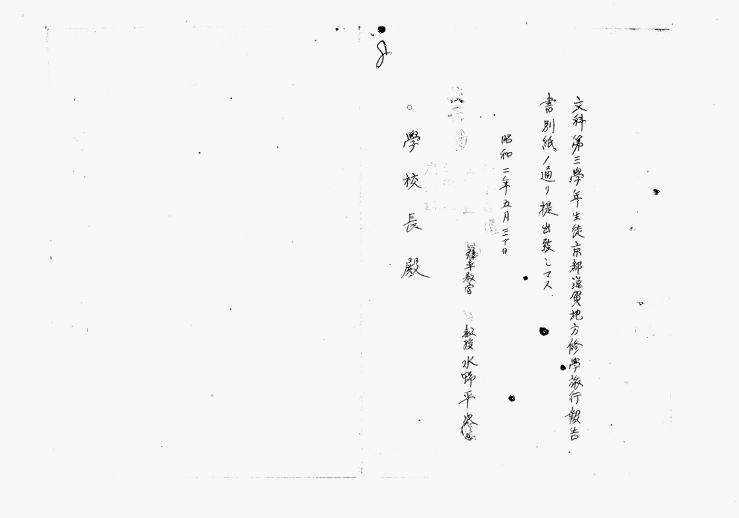 文科第三學年生徒京都滋賀地方修學旅行報告
書別紙ノ通リ提出致シマス
昭和二年五月三十日
教官
教授水野平次
學校長殿